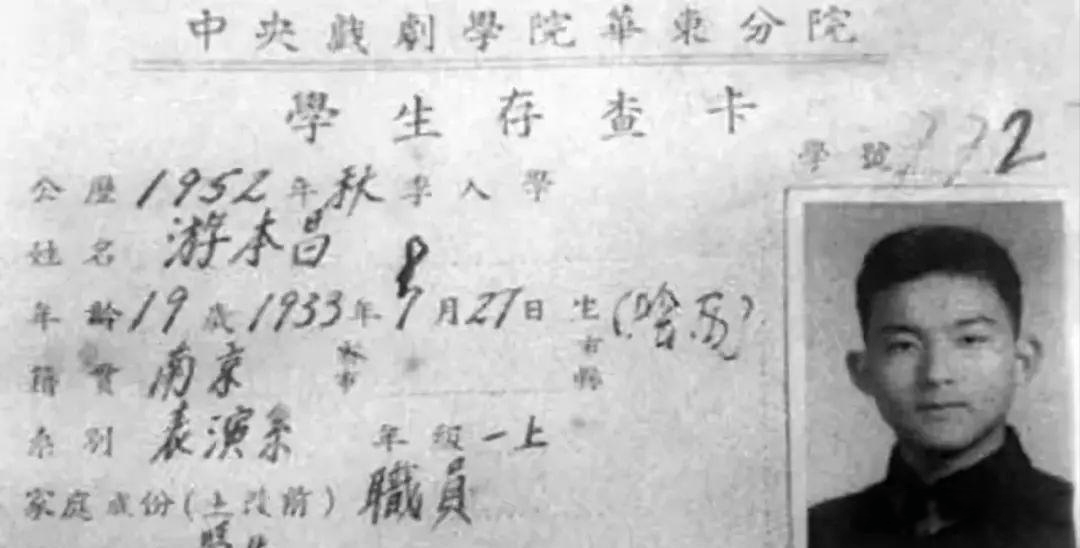 中央戲劇學院華東分院
學生存查卡
學號 2
公歷1952年秋季入學
姓名 游本昌
年齡19歲1933年8月27日生(陰历)
籍貫 南京 市縣
系別 表演系 年級一上
家庭成份(土改前) 職員